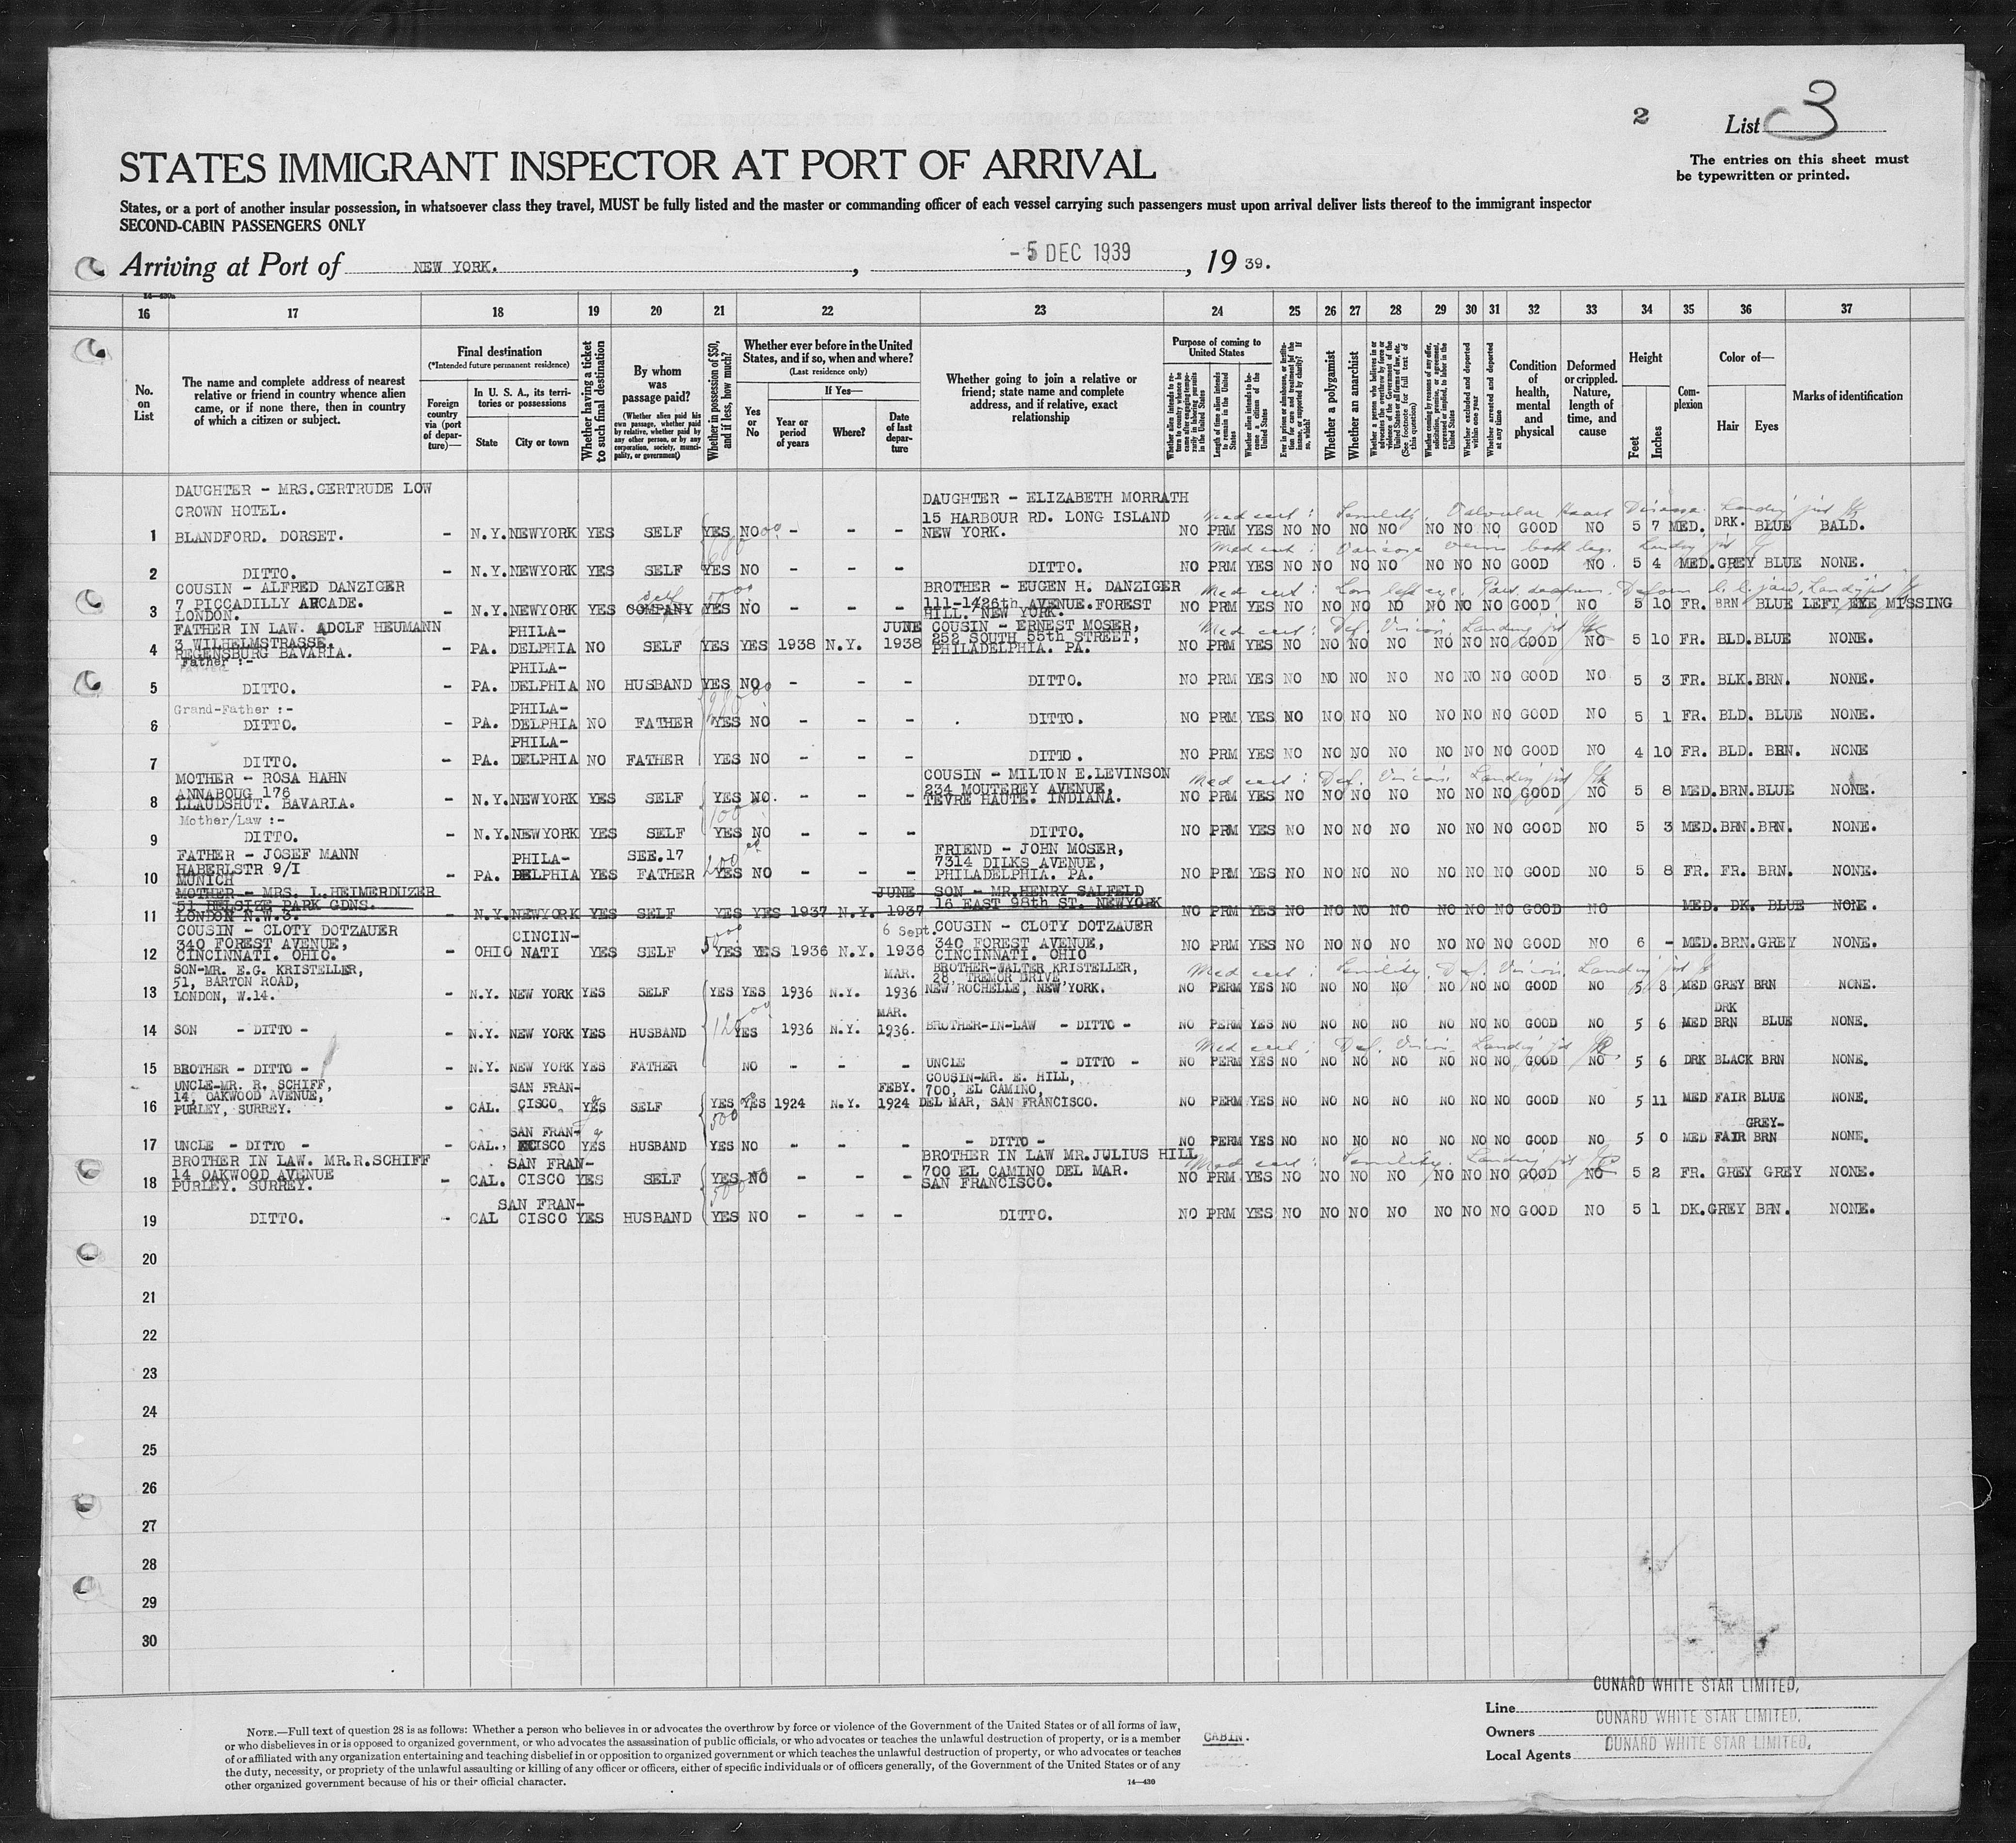 2
List 3
The entries on this sheet must
be typewritten or printed.
STATES IMMIGRANT INSPECTOR AT PORT OF ARRIVAL
States, or a port of another insular possession, in whatsoever class they travel, MUST be fully listed and the master or commanding officer of each vessel carrying such passengers must upon arrival deliver lists thereof to the immigrant inspector
SECOND-CABIN PASSENGERS ONLY
Arriving at Port of NEW YORK. , -5 DEC 1939 , 19 39.
16 17 18 19 20 21 22 23 24 25 26 27 28 29 30 31 32 33 34 35 36 37
No. on List
The name and complete address of nearest relative or friend in country whence alien came, or if none there, then in country of which a citizen or subject.
Final destination
(*Intended future permanent residence)
Foreign country via (port of departure)—
In U. S. A., its territories or possessions
State
City or town
Whether having a ticket to such final destination
By whom was passage paid?
(Whether alien paid his own passage, whether paid by relative, whether paid by any other person, or by any corporation, society, municipality, or government)
Whether in possession of $50, and if less, how much?
Whether ever before in the United States, and if so, when and where?
(Last residence only)
Yes or No
If Yes—
Year or period of years
Where?
Date of last departure
Whether going to join a relative or friend; state name and complete address, and if relative, exact relationship
Purpose of coming to United States
Whether alien intends to return to country whence he came after engaging temporarily in laboring pursuits in the United States
Length of time alien intends to remain in the United States
Whether alien intends to become a citizen of the United States
Ever in prison or almshouse, or institution for care and treatment of the insane, or supported by charity? If so, which?
Whether a polygamist
Whether an anarchist
Whether a person who believes in or advocates the overthrow by force or violence of the Government of the United States or of all forms of law, etc. (See footnote for full text of this question)
Whether coming by reason of any offer, solicitation, promise, or agreement, expressed or implied, to labor in the United States
Whether excluded and deported within one year
Whether arrested and deported at any time
Condition of health, mental and physical
Deformed or crippled. Nature, length of time, and cause
Height
Feet
Inches
Complexion
Color of—
Hair
Eyes
Marks of identification
DAUGHTER - MRS.GERTRUDE LOW
CROWN HOTEL.
DAUGHTER - ELIZABETH MORRATH
15 HARBOUR RD. LONG ISLAND
Med cert: Senility, Valvular Heart Disease. Landing
1 BLANDFORD. DORSET. - N.Y. NEWYORK YES SELF YES NO - - - NEW YORK. NO PRM YES NO NO NO NO NO NO NO GOOD NO 5 7 MED. DRK. BLUE BALD.
Med cert: Varicose veins both legs. Landing
2 DITTO. - N.Y. NEWYORK YES SELF YES NO - - - DITTO. NO PRM YES NO NO NO NO NO NO NO GOOD NO. 5 4 MED. GREY BLUE NONE.
COUSIN - ALFRED DANZIGER
7 PICCADILLY ARCADE.
BROTHER - EUGEN H. DANZIGER
111-1426th AVENUE.FOREST
Med cert: Loss left eye.
Self
3 LONDON. - N.Y. NEWYORK YES COMPANY YES NO - - - HILL. NEW YORK. NO PRM YES NO NO NO NO NO NO NO GOOD NO 5 10 FR. BRN BLUE LEFT EYE MISSING
FATHER IN LAW. ADOLF HEUMANN
3 WILHELMSTRASSE.
PHILA-
JUNE
COUSIN - ERNEST MOSER,
252 SOUTH 55th STREET,
Med cert: Def. Vision Landing
4 REGENSBURG BAVARIA. - PA. DELPHIA NO SELF YES YES 1938 N.Y. 1938 PHILADELPHIA. PA. NO PRM YES NO NO NO NO NO NO NO GOOD NO 5 10 FR. BLD. BLUE NONE.
Father :-
PHILA-
5 DITTO. - PA. DELPHIA NO HUSBAND YES NO - - - DITTO. NO PRM YES NO NO NO NO NO NO NO GOOD NO 5 3 FR. BLK. BRN. NONE.
Grand-Father :-
PHILA-
6 DITTO. - PA. DELPHIA NO FATHER YES NO - - - DITTO. NO PRM YES NO NO NO NO NO NO NO GOOD NO 5 1 FR. BLD. BLUE NONE.
PHILA-
7 DITTO. - PA. DELPHIA NO FATHER YES NO - - - DITTO. NO PRM YES NO NO NO NO NO NO NO GOOD NO 4 10 FR. BLD. BRN. NONE
MOTHER - ROSA HAHN
ANNABOUG 176
COUSIN - MILTON E.LEVINSON
234 MOUTEREY AVENUE,
Med cert: Def. Vision. Landing
8 LLAUDSHUT. BAVARIA. - N.Y. NEWYORK YES SELF YES NO. - - - TEVRE HAUTE. INDIANA. NO PRM YES NO NO NO NO NO NO NO GOOD NO 5 8 MED. BRN. BLUE NONE.
Mother/Law :-
100
9 DITTO. - N.Y. NEWYORK YES SELF YES NO - - - DITTO. NO PRM YES NO NO NO NO NO NO NO GOOD NO 5 3 MED. BRN. BRN. NONE.
FATHER - JOSEF MANN
HABERLSTR 9/I
PHILA-
SEE.17
200
FRIEND - JOHN MOSER,
7314 DILKS AVENUE,
10 MUNICH - PA. DELPHIA YES FATHER YES NO - - - PHILADELPHIA. PA. NO PRM YES NO NO NO NO NO NO NO GOOD NO 5 8 FR. FR. BRN. NONE.
MOTHER - MRS. L.HEIMERDUZER
51 HELSIZE PARK GDNS.
JUNE
SON - MR.HENRY SALFELD
16 EAST 98th ST. NEWYORK
11 LONDON N.W.3. - N.Y. NEWYORK YES SELF YES YES 1937 N.Y. 1937 NO PRM YES NO NO NO NO NO NO NO GOOD NO MED. DK. BLUE NONE.
COUSIN - CLOTY DOTZAUER
340 FOREST AVENUE,
CINCIN-
6 Sept.
COUSIN - CLOTY DOTZAUER
340 FOREST AVENUE,
12 CINCINNATI. OHIO. - OHIO NATI YES SELF YES YES 1936 N.Y. 1936 CINCINNATI. OHIO NO PRM YES NO NO NO NO NO NO NO GOOD NO 6 - MED. BRN. GREY NONE.
SON-MR. E.G. KRISTELLER,
51, BARTON ROAD,
MAR.
BROTHER-WALTER KRISTELLER,
28 TREMOR DRIVE,
Med cert: Senility, Def. Vision. Landing
13 LONDON, W.14. - N.Y. NEW YORK YES SELF YES YES 1936 N.Y. 1936 NEW ROCHELLE, NEW YORK. NO PERM YES NO NO NO NO NO NO NO GOOD NO 5 8 MED GREY BRN NONE.
MAR.
DRK
14 SON - DITTO - - N.Y. NEW YORK YES HUSBAND YES 1936 N.Y. 1936. BROTHER-IN-LAW - DITTO - NO PERM YES NO NO NO NO NO NO NO GOOD NO 5 6 MED BRN BLUE NONE.
Med cert: Def. Vision Landing
15 BROTHER - DITTO - - N.Y. NEW YORK YES FATHER NO - - - UNCLE - DITTO - NO PERM YES NO NO NO NO NO NO NO GOOD NO 5 6 DRK BLACK BRN NONE.
UNCLE-MR. R. SCHIFF,
14, OAKWOOD AVENUE,
SAN FRAN-
FEBY.
COUSIN-MR. E. HILL,
700, EL CAMINO,
16 PURLEY, SURREY. - CAL. CISCO YES SELF YES YES 1924 N.Y. 1924 DEL MAR, SAN FRANCISCO. NO PERM YES NO NO NO NO NO NO NO GOOD NO 5 11 MED FAIR BLUE NONE.
500
SAN FRAN-
GREY-
17 UNCLE - DITTO - - CAL. CISCO YES HUSBAND YES NO - - - - DITTO - NO PERM YES NO NO NO NO NO NO NO GOOD NO 5 0 MED FAIR BRN NONE.
BROTHER IN LAW. MR.R.SCHIFF
14 OAKWOOD AVENUE
SAN FRAN-
BROTHER IN LAW MR.JULIUS HILL
700 EL CAMINO DEL MAR.
Med cert: Senility. Landing
18 PURLEY. SURREY. - CAL. CISCO YES SELF YES NO - - - SAN FRANCISCO. NO PRM YES NO NO NO NO NO NO NO GOOD NO 5 2 FR. GREY GREY NONE.
SAN FRAN-
19 DITTO. - CAL CISCO YES HUSBAND YES NO - - - DITTO. NO PRM YES NO NO NO NO NO NO NO GOOD NO 5 1 DK. GREY BRN. NONE.
20
21
22
23
24
25
26
27
28
29
30
NOTE.—Full text of question 28 is as follows: Whether a person who believes in or advocates the overthrow by force or violence of the Government of the United States or of all forms of law,
or who disbelieves in or is opposed to organized government, or who advocates the assassination of public officials, or who advocates or teaches the unlawful destruction of property, or is a member
of or affiliated with any organization entertaining and teaching disbelief in or opposition to organized government or which teaches the unlawful destruction of property, or who advocates or teaches
the duty, necessity, or propriety of the unlawful assaulting or killing of any officer or officers, either of specific individuals or of officers generally, of the Government of the United States or of any
other organized government because of his or their official character.
14—430
CABIN.
Line CUNARD WHITE STAR LIMITED,
Owners CUNARD WHITE STAR LIMITED,
Local Agents CUNARD WHITE STAR LIMITED,